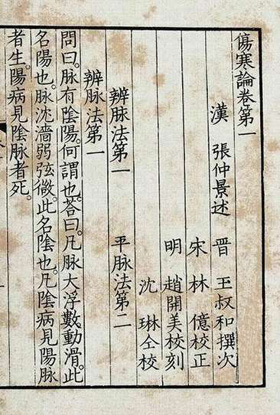 傷寒論卷第一
漢 張仲景述 晋 王叔和撰次
宋 林 億校正
明 趙開美校刻
沈 琳仝校
辨脉法第一 平脉法第二
辨脉法第一
問曰。脉有陰陽。何謂也。荅曰。凡脉大浮數動滑。此
名陽也。脉沈濇弱弦微。此名陰也。凡陰病見陽脉
者生。陽病見陰脉者死。